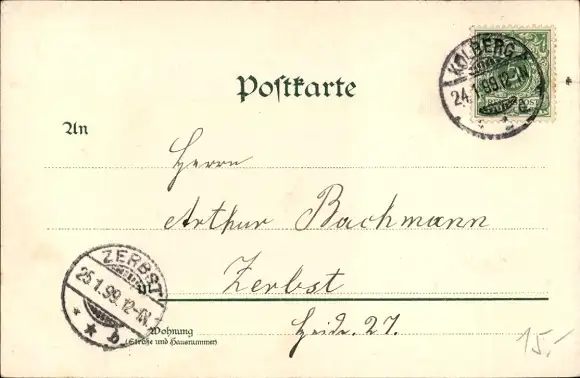 KOLBERG
24.1.99.12-1N.
a
Postkarte
An
Herrn
Arthur Bachmann
Zerbst
ZERBST
25.1.99.12-1N.
b
Wohnung
(Straße und Hausnummer)
Heide. 27.
15,-